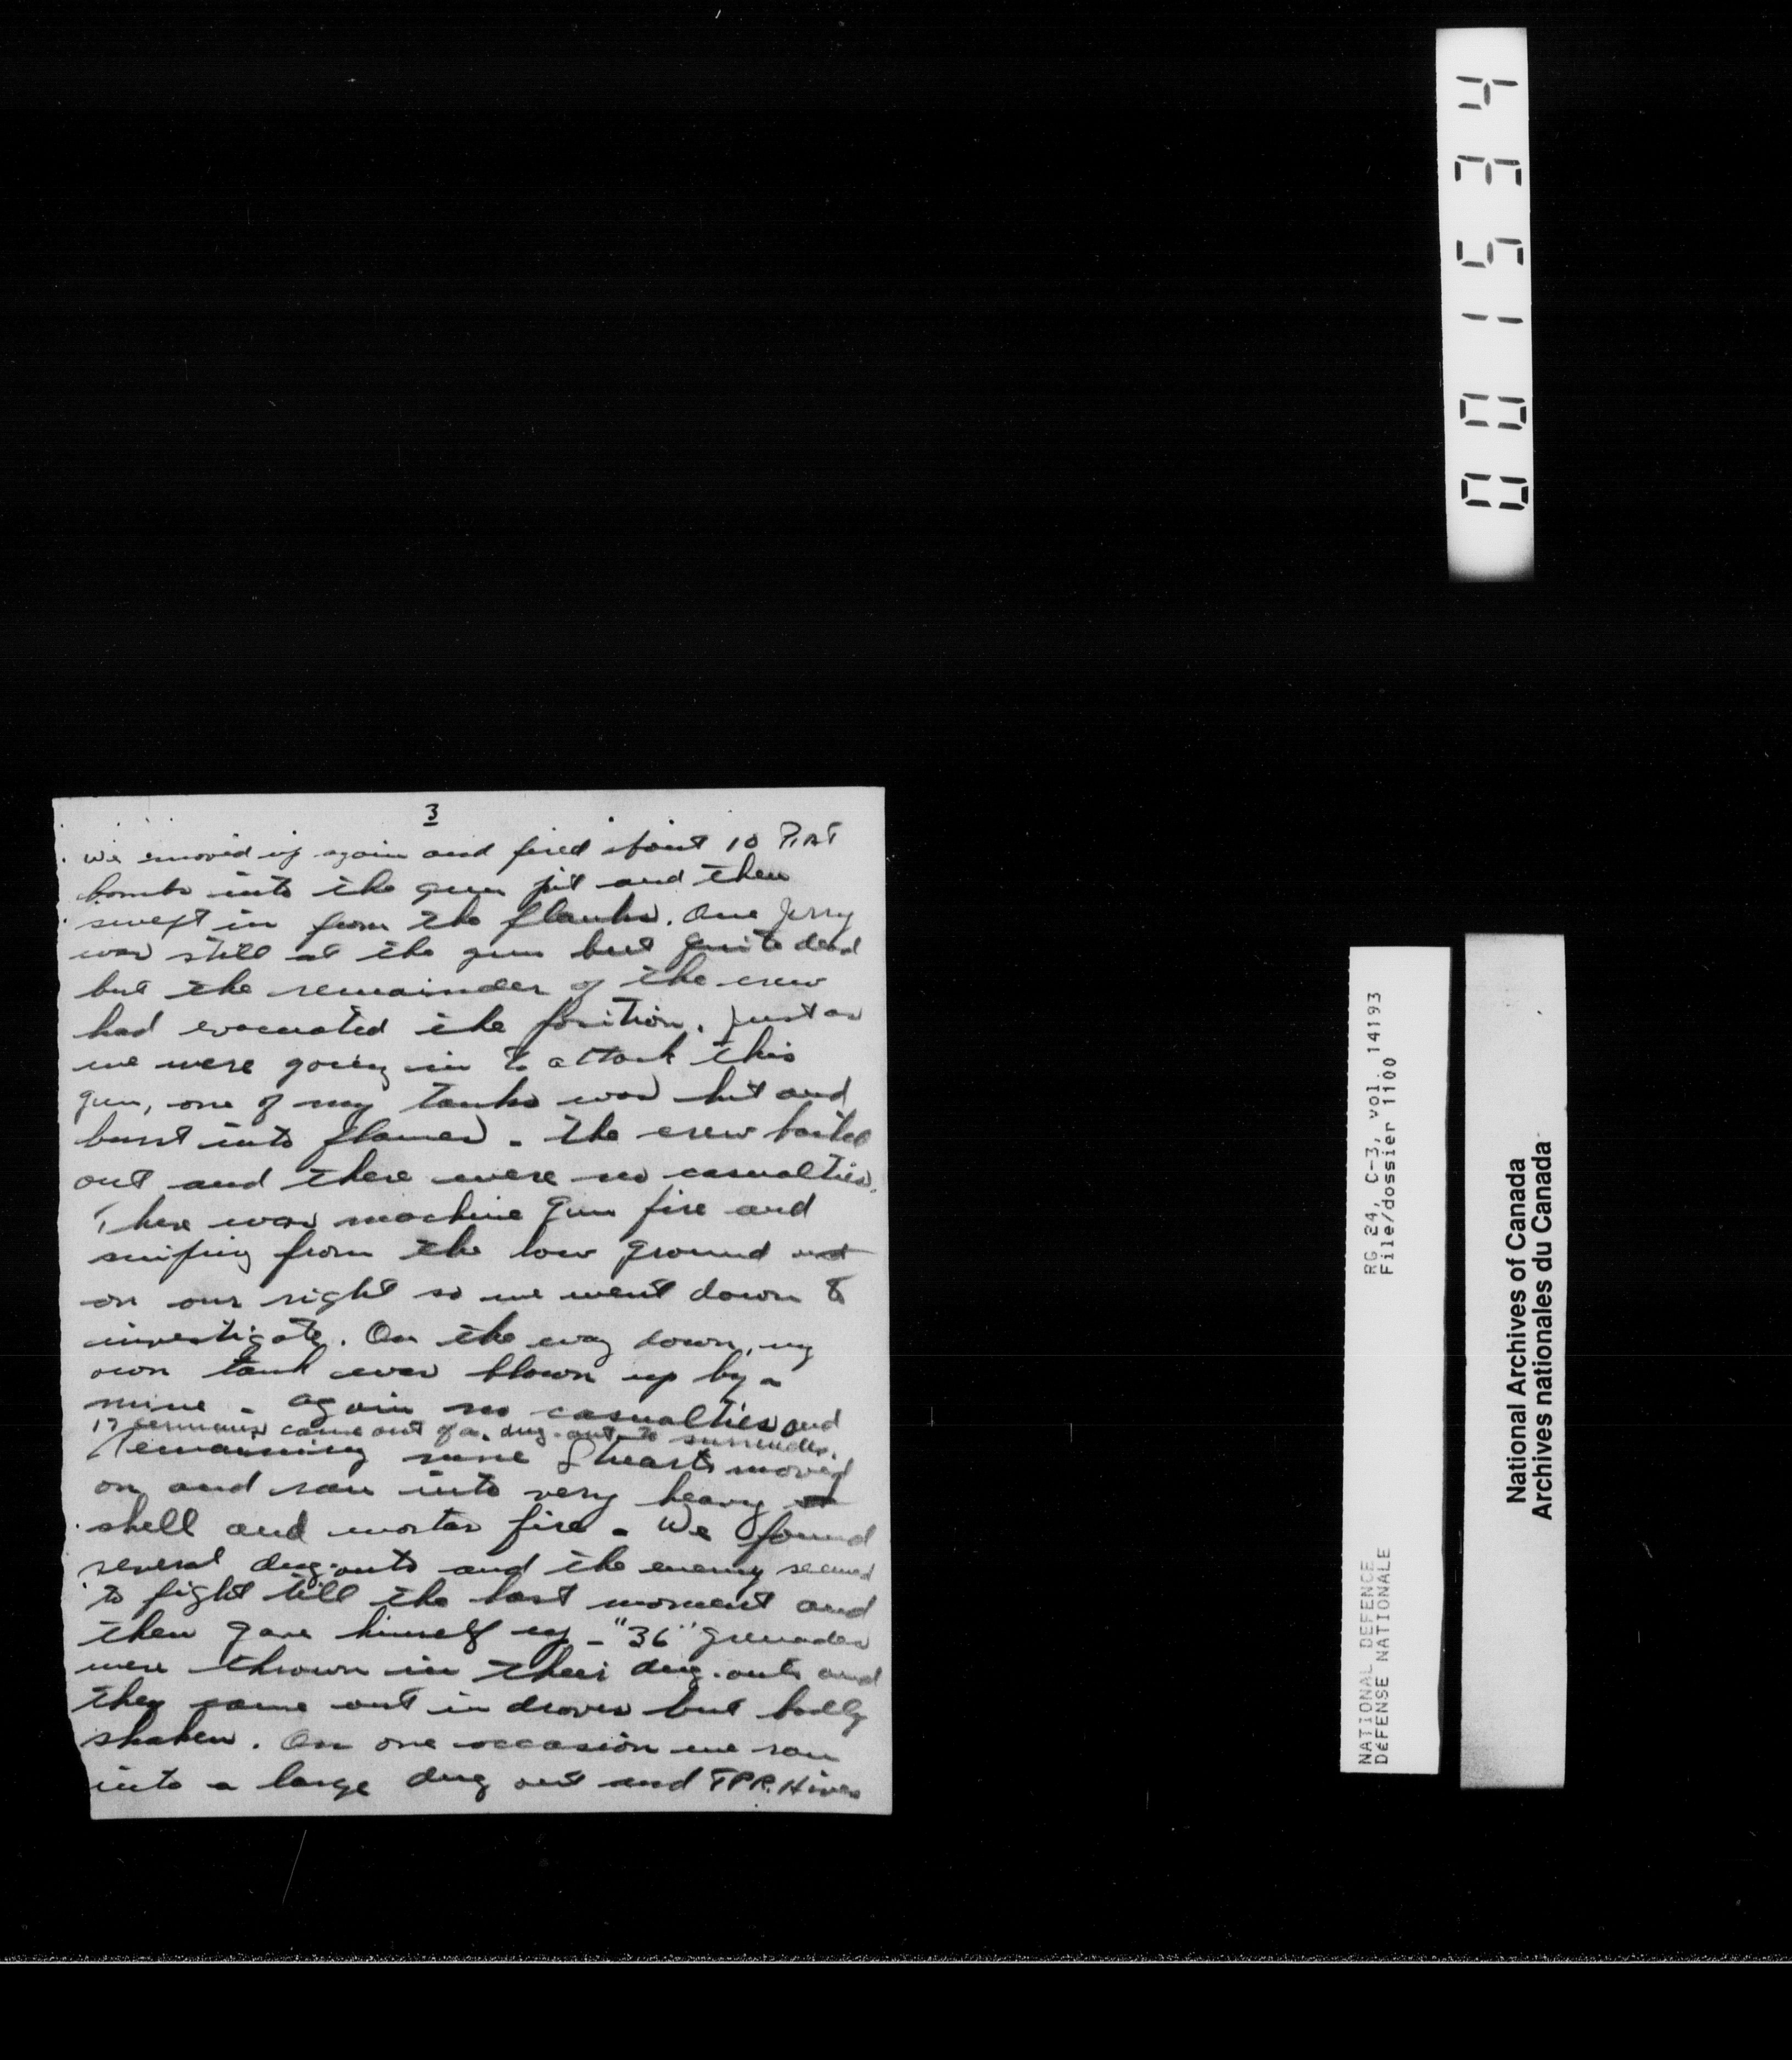 3
We moved up again and fired about 10 PIAT
bombs into the gun pit and then
swept in from the flanks. One Jerry
was still at the gun but quite dead
but the remainder of the crew
had evacuated the position. Just as
we were going in to attack this
gun, one of my tanks was hit and
burst into flames - the crew bailed
out and there were no casualties.
There was machine gun fire and
sniping from the low ground
on our right so we went down to
investigate. On the way down, my
own tank was blown up by a
mine - again no casualties and
17 Germans came out of a dug-out to surrender.
Remaining nine Stuarts moved
on and ran into very heavy
shell and mortar fire - We found
several dug-outs and the enemy seemed
to fight till the last moment and
then gave himself up - "36" grenades
were thrown in their dug-outs and
they came out in droves but badly
shaken. On one occasion we ran
into a large dug out and TPR. Hines
001534
RG 24, C-3, vol. 14193
File/dossier 1100
NATIONAL DEFENCE
DÉFENSE NATIONALE
National Archives of Canada
Archives nationales du Canada